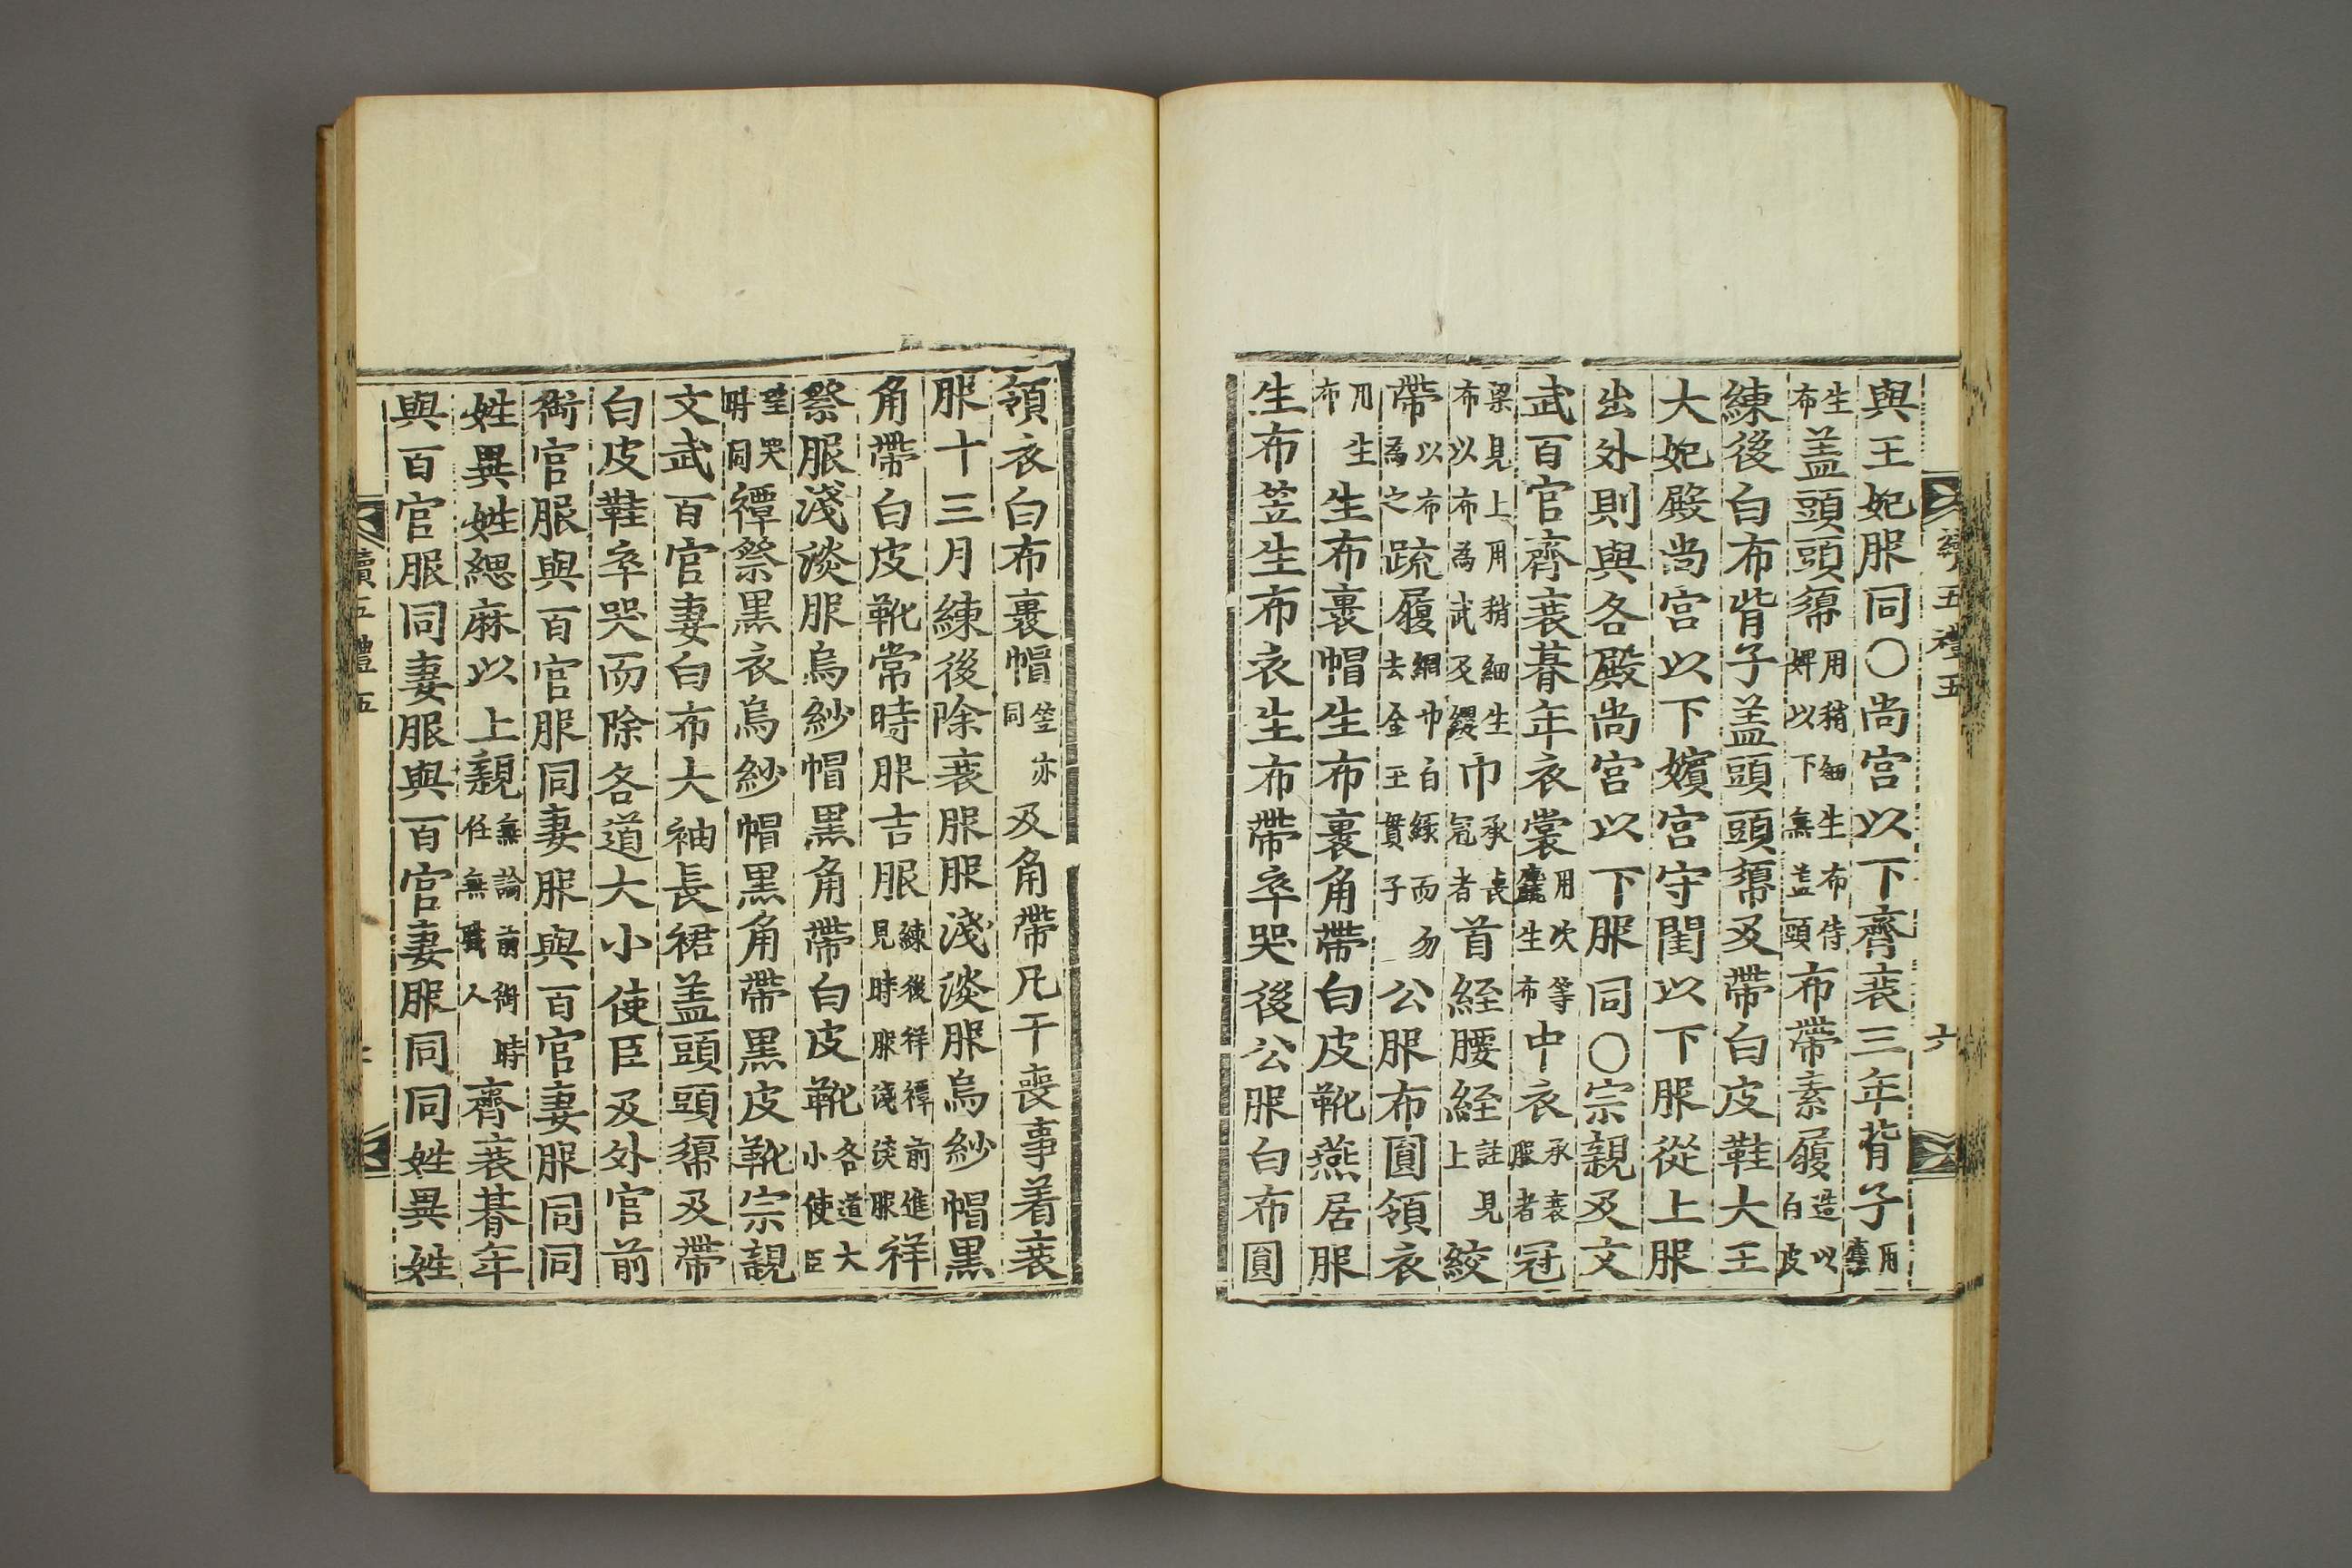 續五禮五
六
與王妃服同○尚宮以下齊衰三年背子用麤
生布盖頭頭𢄼用稍細生布侍婢以下無盖頭布帶素履造以白皮
練後白布背子盖頭頭𢄼及帶白皮鞋大王
大妃殿尚宮以下嬪宮守閨以下服從上服
出外則與各殿尚宮以下服同○宗親及文
武百官齊衰朞年衣裳用次等麤生布中衣承衰服者冠
梁見上用稍細生布以布為武及纓巾承喪冠者首絰腰絰註見上絞
帶以布為之疏履網巾白緣而勿去金玉貫子公服布圓領衣
用生布生布裹帽生布裹角帶白皮靴燕居服
生布笠生布衣生布帶卒哭後公服白布圓
領衣白布裹帽笠亦同及角帶凡干喪事着衰
服十三月練後除衰服服淺淡服烏紗帽黑
角帶白皮靴常時服吉服練後祥禫前進見時服淺淡服祥
祭服淺淡服烏紗帽黑角帶白皮靴各道大小使臣
望哭時同禫祭黑衣烏紗帽黑角帶黑皮靴宗親
文武百官妻白布大袖長裙盖頭頭𢄼及帶
白皮鞋卒哭而除各道大小使臣及外官前
銜官服與百官服同妻服與百官妻服同同
姓異姓緦麻以上親無論前銜時任無職人齊衰朞年
與百官服同妻服與百官妻服同同姓異姓
續五禮五